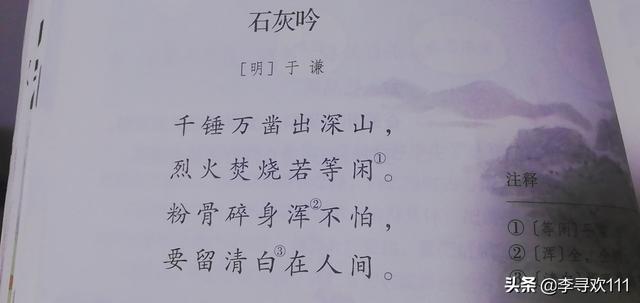 石灰吟
[明] 于 谦
千锤万凿出深山，
烈火焚烧若等闲①。
粉骨碎身浑②不怕，
要留清白③在人间。
注释
①〔等闲〕平常
②〔浑〕全，全
头条 @李寻欢111